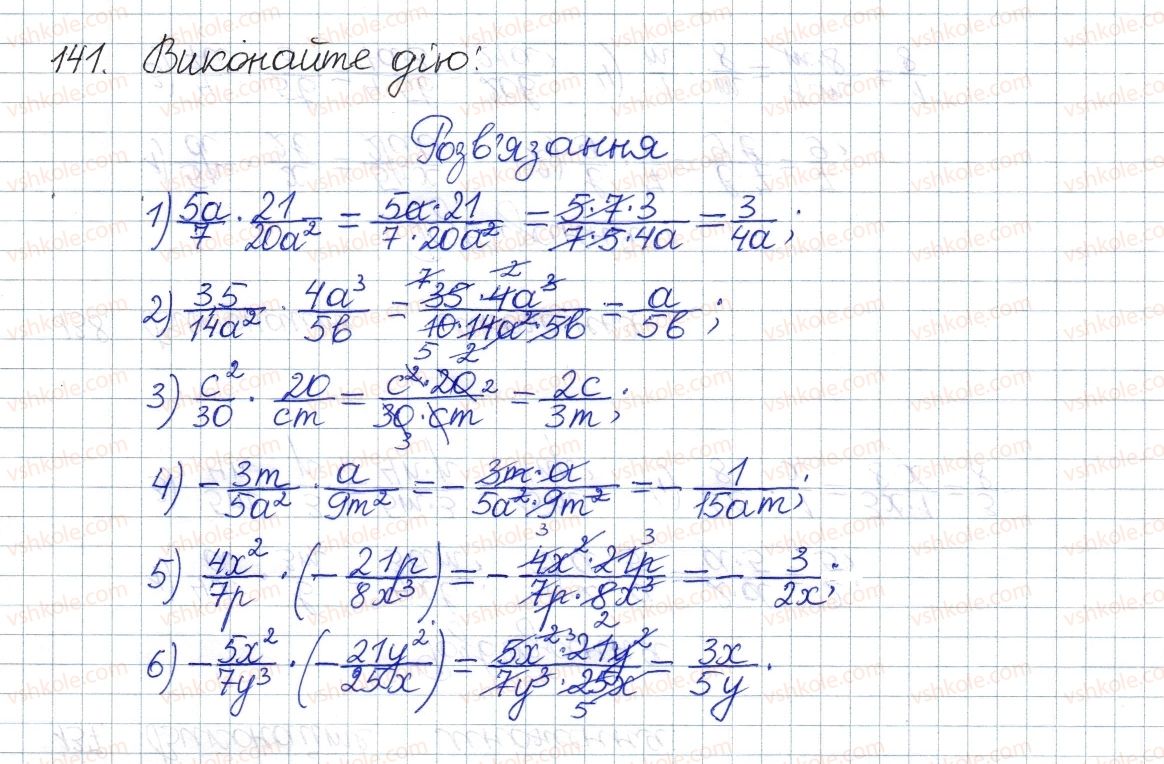 141. Виконайте дію:
Розв'язання
1) 5a/7 · 21/20a² = 5a·21/7·20a² = 5·7·3/7·5·4a = 3/4a;
2) 35/14a² · 4a³/5b = 7 35·4a³ 2/10·14a²·5b 5 2 = a/5b;
3) c²/30 · 20/cm = c²·20 2/30·cm 3 = 2c/3m;
4) - 3m/5a² · a/9m² = - 3m·a/5a²·9m² = - 1/15am;
5) 4x²/7p · (- 21p/8x³) = - 4x²·21p 3/7p·8x³ 2 = - 3/2x;
6) - 5x²/7y³ · (- 21y²/25x) = 5x²·3 21y²/7y³·25x 5 = 3x/5y.